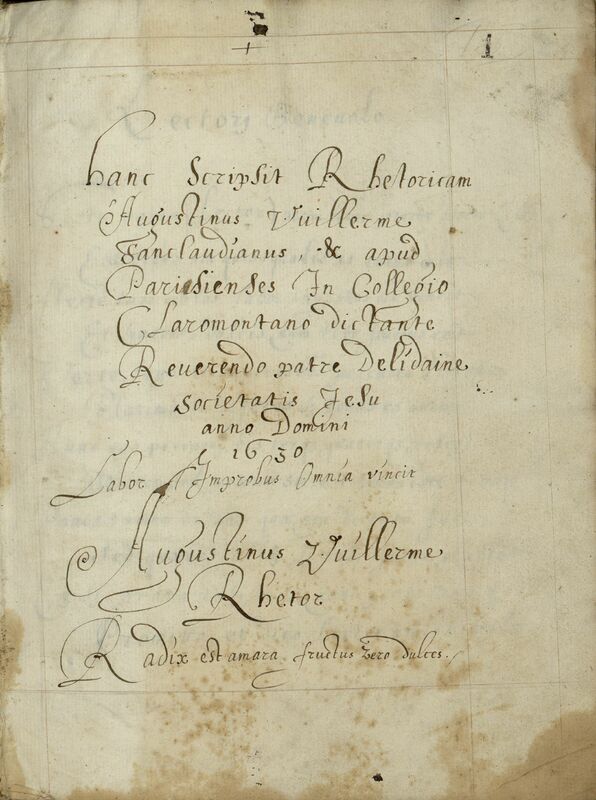 1
hanc Scripsit Rhetoricam
Augustinus Vuillerme
Sanclaudianus, & apud
Parisienses In Collegio
Claromontano dictante
Reverendo patre Delidaine
Societatis Jesu
anno Domini
1630
Labor Improbus Omnia vincit
Augustinus Vuillerme
Rhetor
Radix est amara fructus vero dulces.